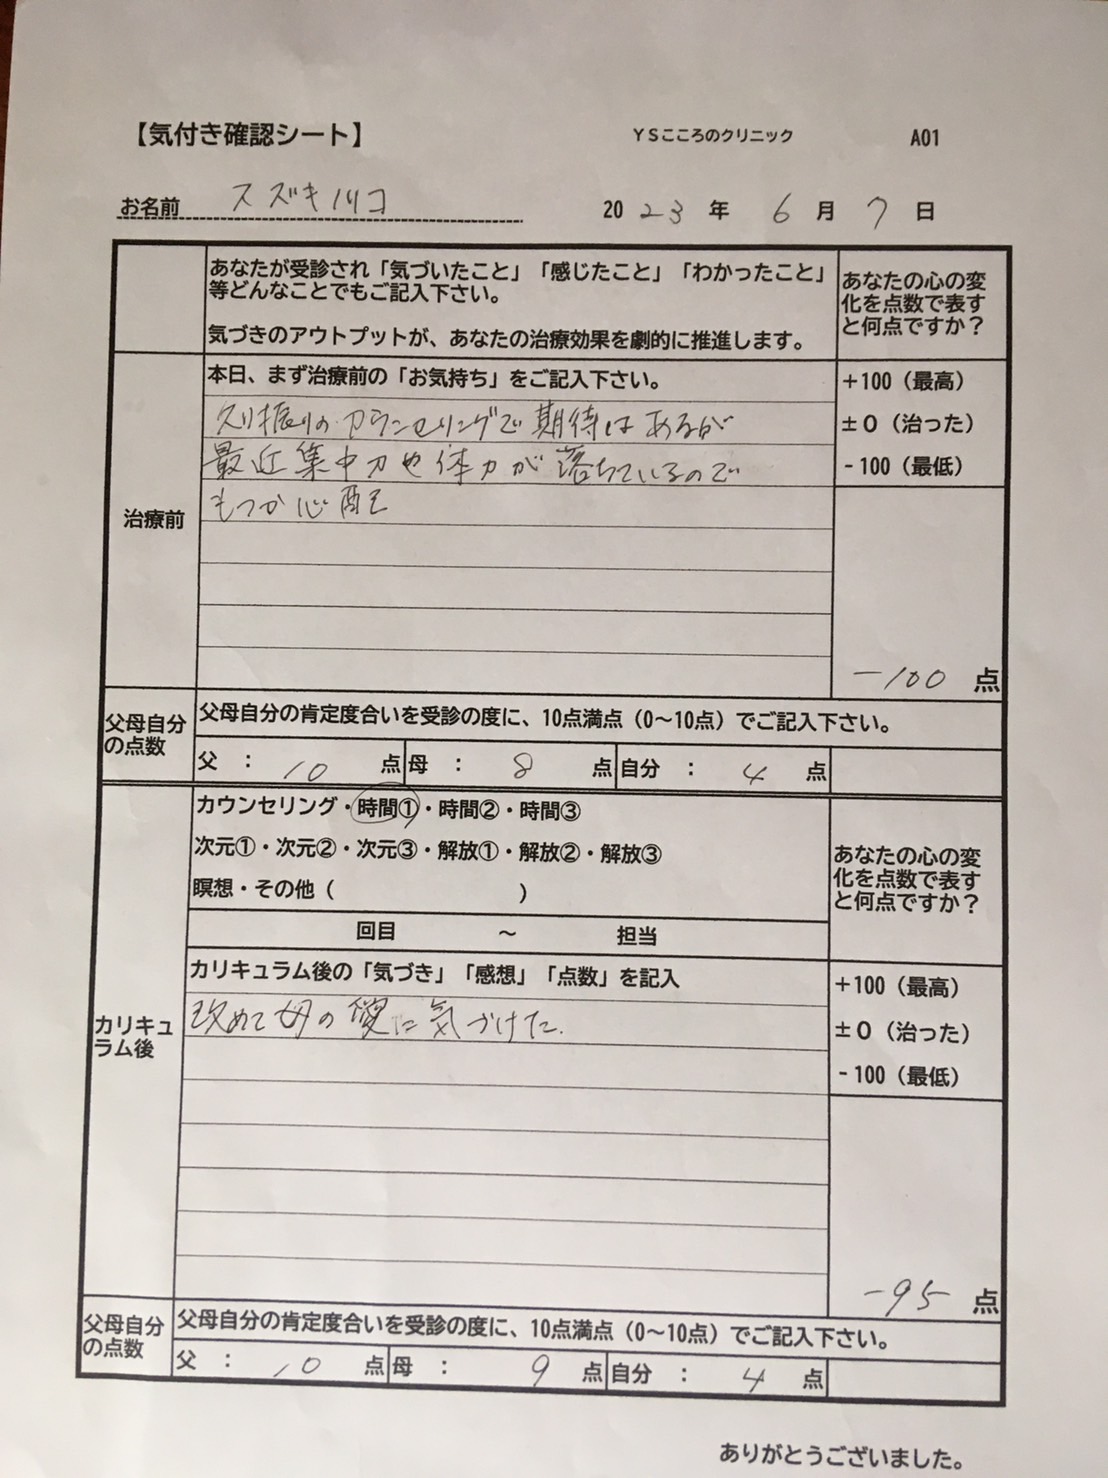 【気付き確認シート】 YSこころのクリニック A01
お名前 スズキノリコ 2023年 6月 7日
あなたが受診され「気づいたこと」「感じたこと」「わかったこと」
等どんなことでもご記入下さい。
気づきのアウトプットが、あなたの治療効果を劇的に推進します。
あなたの心の変
化を点数で表す
と何点ですか？
治療前
本日、まず治療前の「お気持ち」をご記入下さい。
久り振りのカウンセリングで期待はあるが
最近集中力や体力が落ちているので
もつか心配
+100（最高）
±0（治った）
-100（最低）
-100 点
父母自分
の点数
父母自分の肯定度合いを受診の度に、10点満点（0～10点）でご記入下さい。
父 ： 10 点 母 ： 8 点 自分 ： 4 点
カリキュ
ラム後
カウンセリング・時間①・時間②・時間③
次元①・次元②・次元③・解放①・解放②・解放③
瞑想・その他（ ）
回目 ～ 担当
あなたの心の変
化を点数で表す
と何点ですか？
カリキュラム後の「気づき」「感想」「点数」を記入
改めて母の愛に気づけた.
+100（最高）
±0（治った）
-100（最低）
-95 点
父母自分
の点数
父母自分の肯定度合いを受診の度に、10点満点（0～10点）でご記入下さい。
父 ： 10 点 母 ： 9 点 自分 ： 4 点
ありがとうございました。